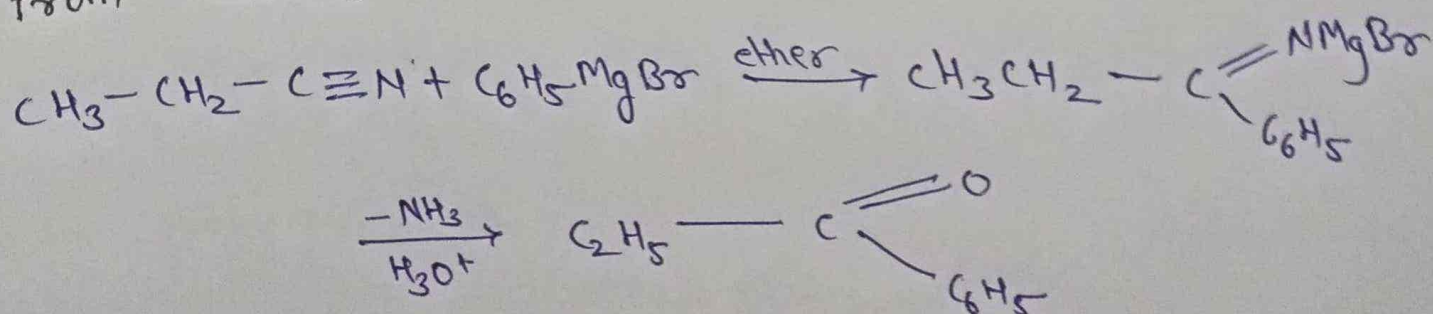 CH₃-CH₂-C≡N + C₆H₅MgBr ether→ CH₃CH₂-C=NMgBr
C₆H₅
-NH₃
H₃O⁺ → C₂H₅-C=O
C₆H₅